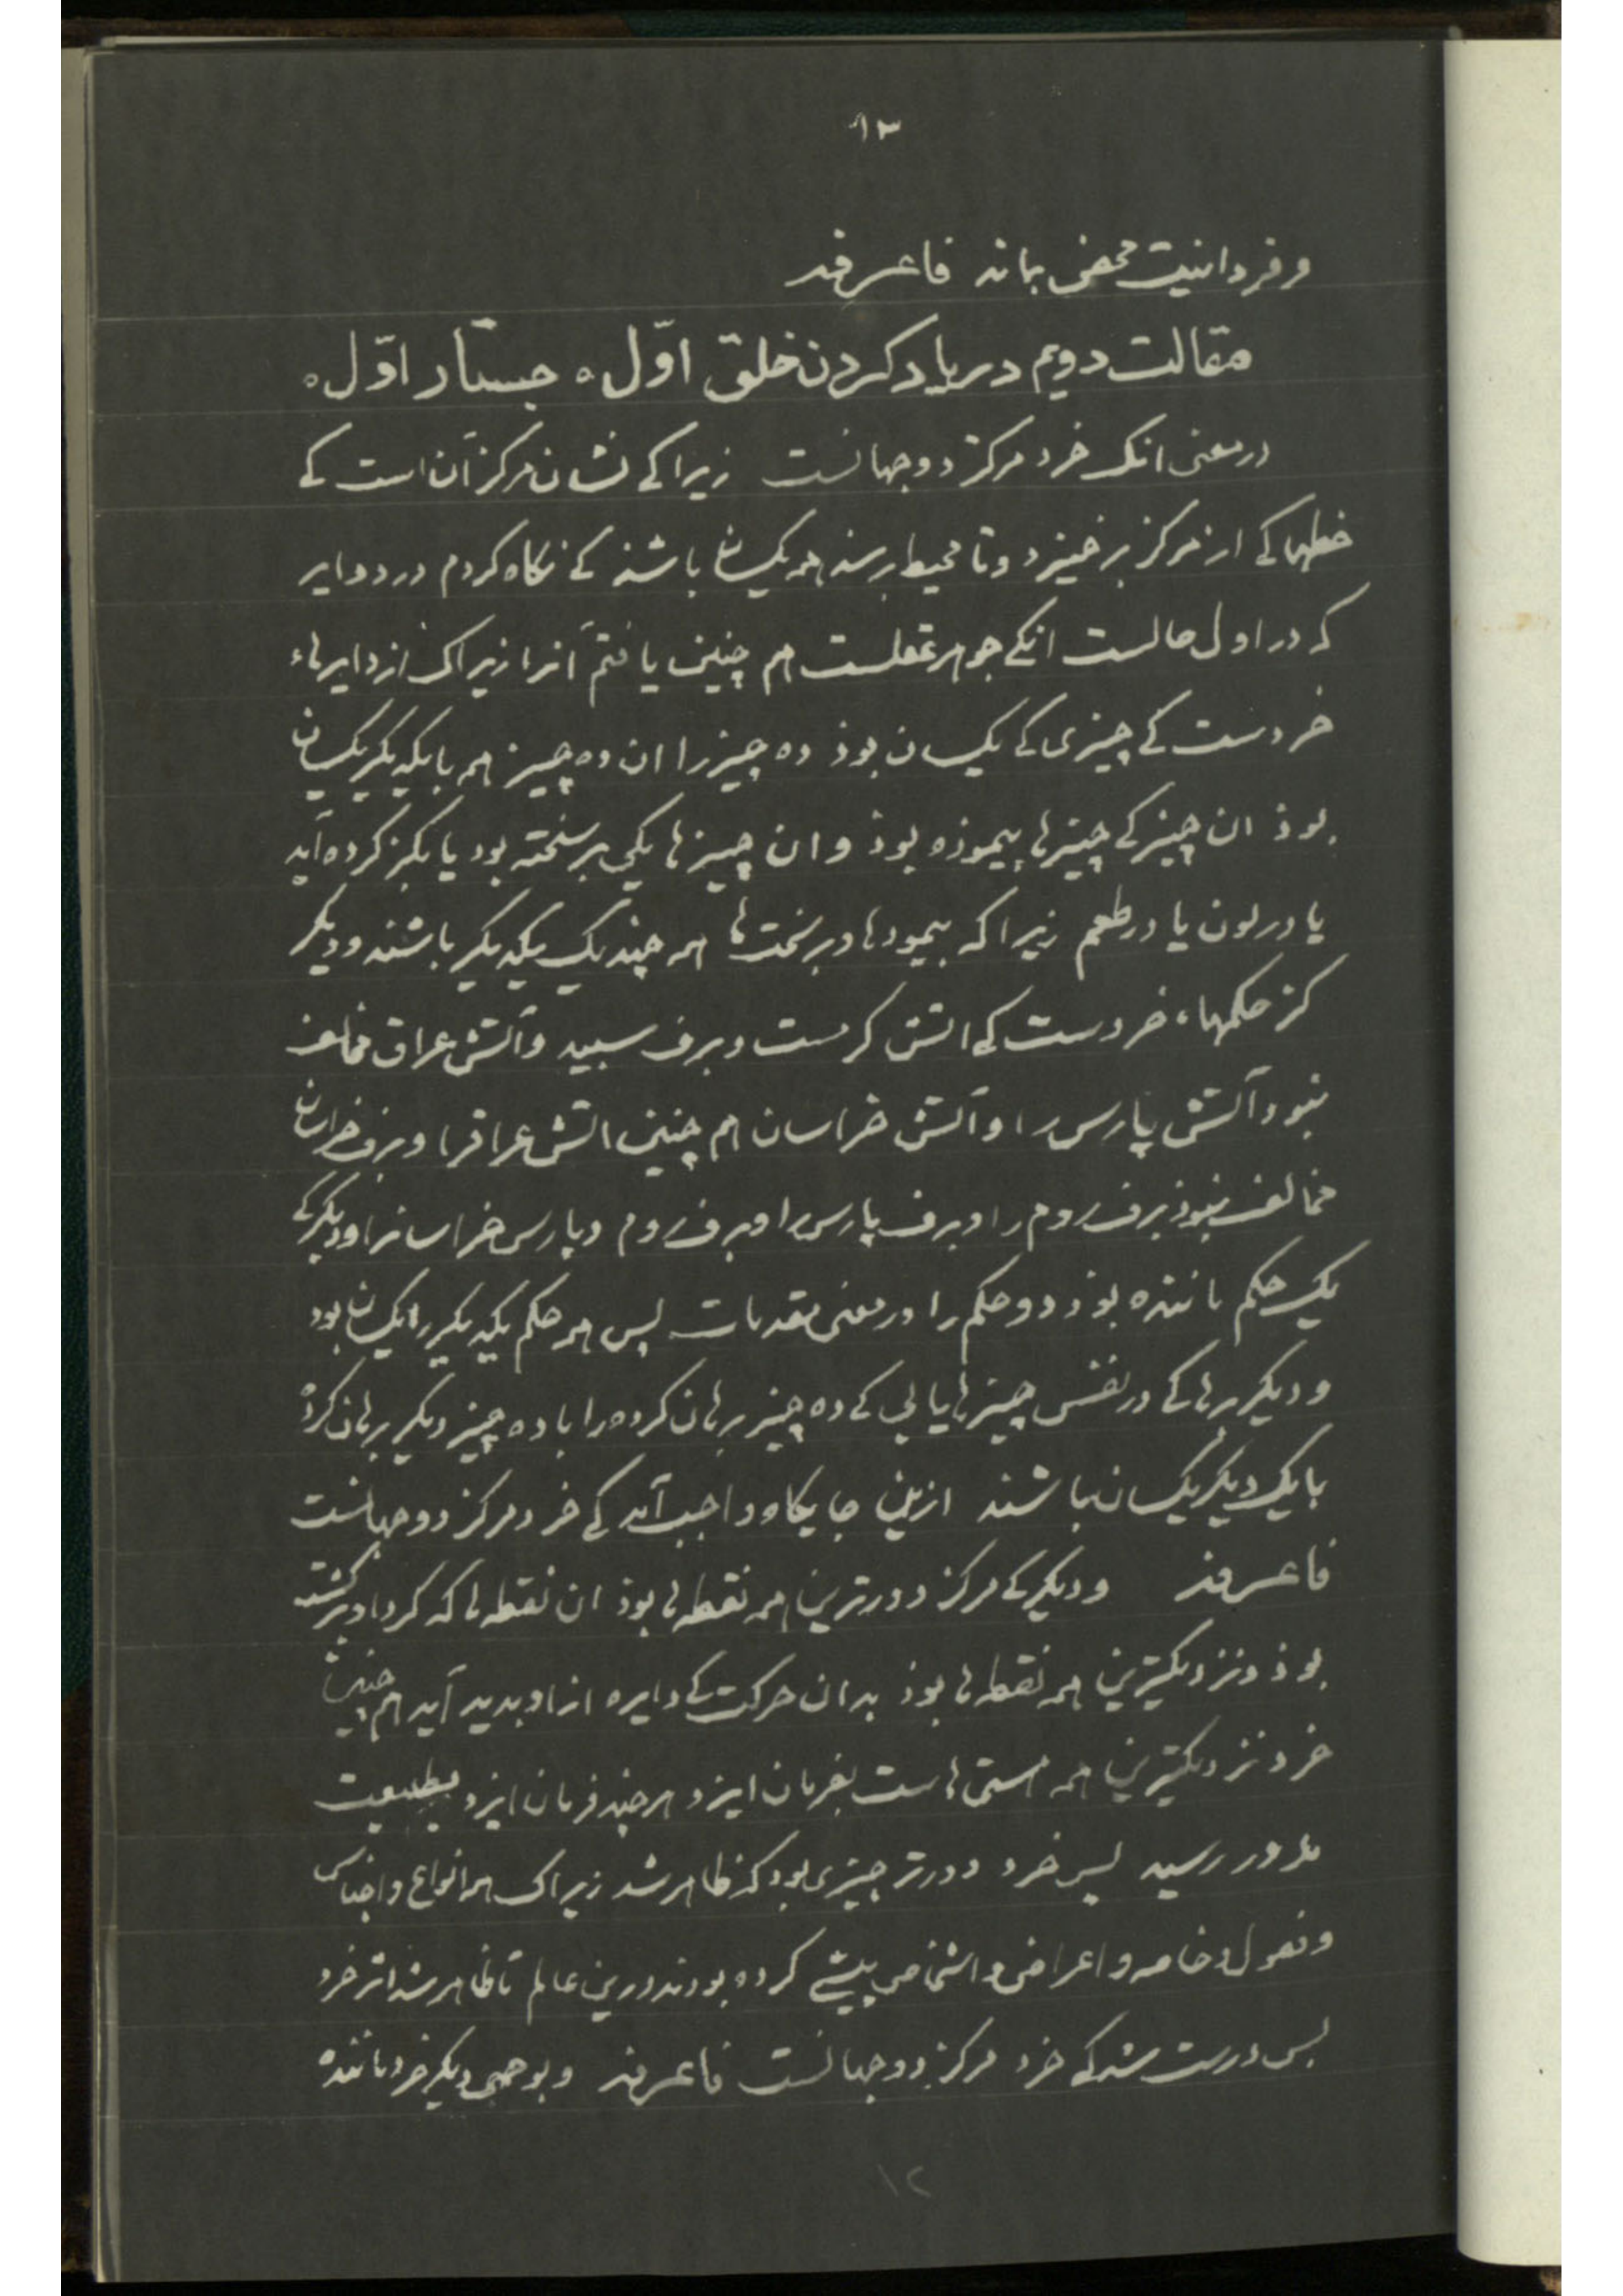 ۱۳
و فردانیت محض بماند فاعرفه
مقالت دویم در یاد کردن خلق اوّل ه جستار اوّل ه
در معنی انک خرد مرکز دو جهانست زیرا کی نشان مرکز آن است کی
خطها کی از مرکز برخیزد و تا محیط رسند همه یکسان باشند کی نکاه کردم در دوایر
که در اول حالست انکی جوهر عقلست هم چنین یافتم آنرا زیراک از دایرهاء
خردست کی چیزی کی یکسان بوذ ده چیز را ان ده چیز همه با یکدیکر یکسان
بوذ ان چیز کی چیزها پیموذه بوذ و ان چیزها یکی برسخته بود یا بکز کرده آید
یا در لون یا در طعم زیرا که پیمودها و برسختها همه چند یک یکدیکر باشند و دیکر
کز حکمهاء خردست کی اتش کرمست و برف سپید و آتش عراق مخالف
نبود آتش پارس را و آتش خراسان هم چنین اتش عراقرا و برف خراسان
مخالف نبوذ برف روم را و برف پارس را و برف روم و پارس خراسانرا و دیکر کی
یک حکم ماننده بوذ دو حکم را در معنی مقدمات پس هر حکم یکدیکر را یکسان بود
و دیکر برهان کی در نفس چیزها یابی کی ده چیز برهان کرده را با ده چیز دیکر برهان کرده
با یک دیکر یکسان باشند ازین جایکاه واجب آمد کی خرد مرکز دو جهانست
فاعرفه و دیکر کی مرکز دورترین همه نقطه ها بوذ ان نقطه ها که کرد او برکشته
بوذ و نزدیکترین همه نقطه ها بوذ بدان حرکت کی دایره از او بدید آید هم چنین
خرد نزدیکترین همه هستی هاست بفرمان ایزد هر چند فرمان ایزد بطبیعت
مدور رسید پس خرد دورتر چیزی بود کز ظاهر شد زیراک همه انواع و اجناس
و فصول و خاصه و اعراض و اشخاص پیشی کرده بودند درین عالم تا ظاهر شد اثر خرد
پس درست شد کی خرد مرکز دو جهانست فاعرفه و بوجهی دیکر خرد ماننده
۱۲